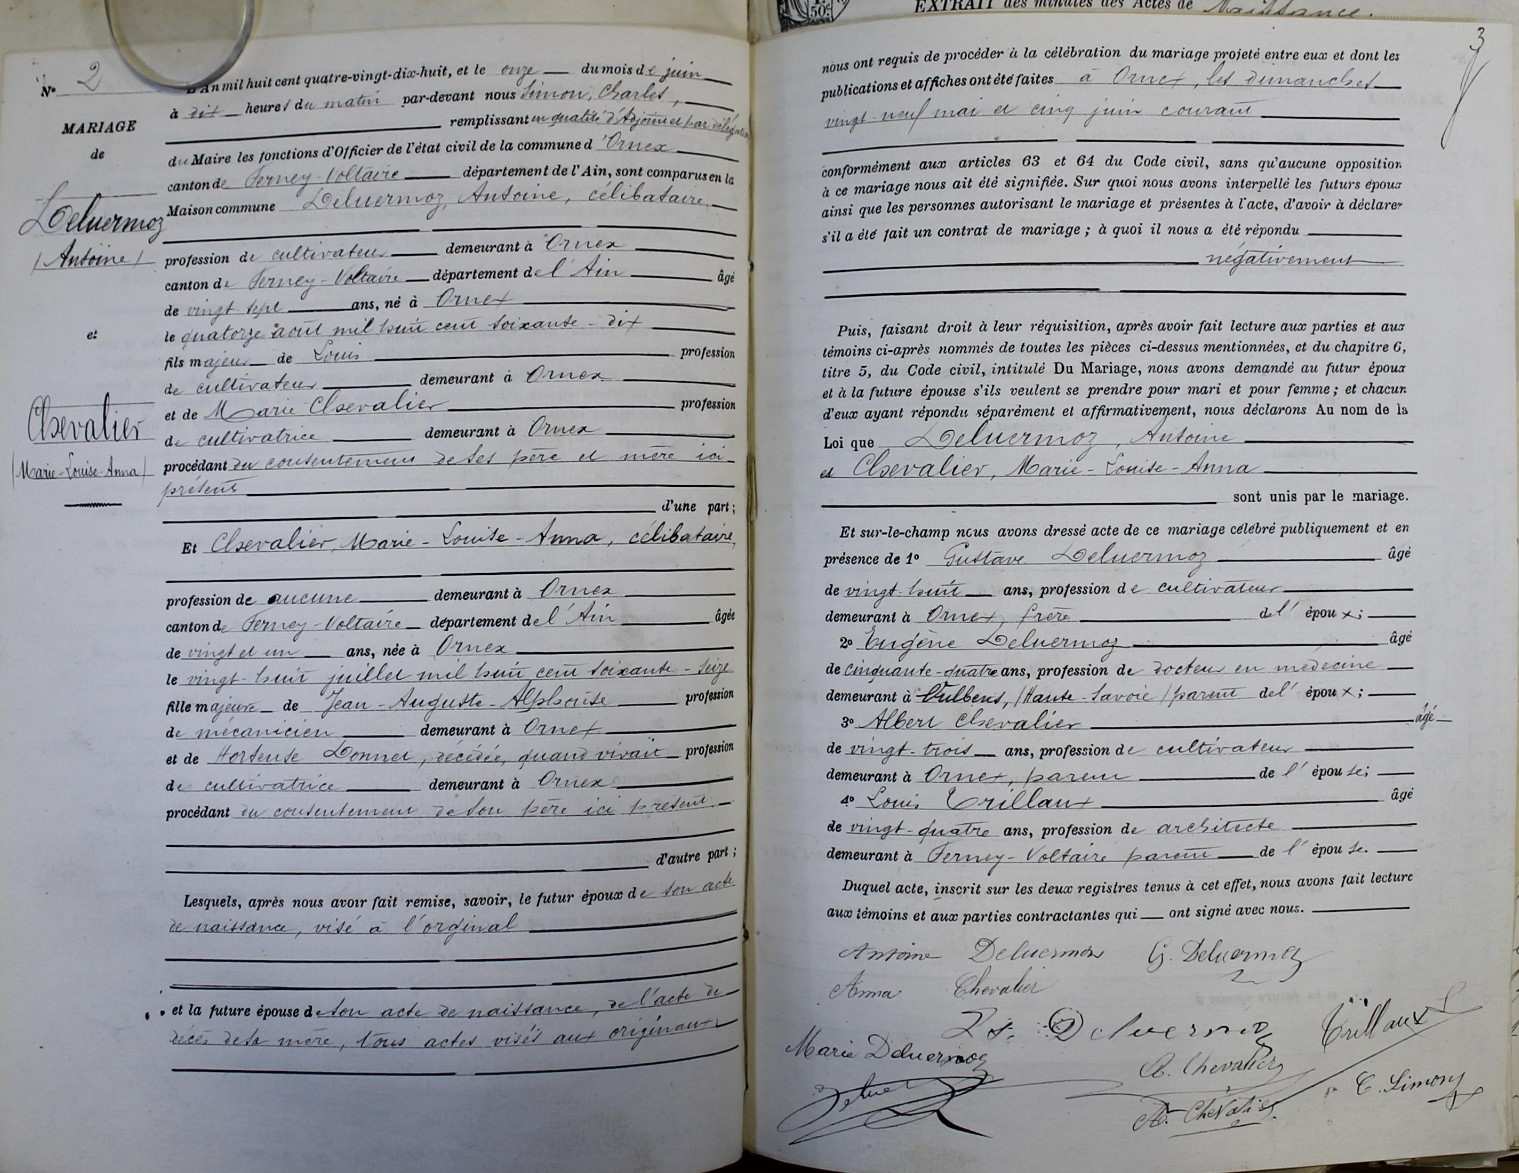 EXTRAIT des minutes des Actes de Naissance.
50c
N° 2
MARIAGE
de
Deluermoz
(Antoine)
et
Chevalier
(Marie-Louise-Anna)
L'An mil huit cent quatre-vingt-dix-huit, et le onze du mois de juin
à dix heures du matin par-devant nous Simon, Charles,
remplissant en qualité d'Adjoint et par délégation
du Maire les fonctions d'Officier de l'état civil de la commune d'Ornex
canton de Ferney-Voltaire département de l'Ain, sont comparus en la
Maison commune Deluermoz, Antoine, célibataire,
profession de cultivateur demeurant à Ornex
canton de Ferney-Voltaire département de l'Ain âgé
de vingt sept ans, né à Ornex
le quatorze août mil huit cent soixante-dix
fils majeur de Louis profession
de cultivateur demeurant à Ornex
et de Marie Chevalier profession
de cultivatrice demeurant à Ornex
procédant du consentement de ses père et mère ici
présents
d'une part;
Et Chevalier, Marie-Louise-Anna, célibataire,
profession de aucune demeurant à Ornex
canton de Ferney-Voltaire département de l'Ain âgée
de vingt et un ans, née à Ornex
le vingt-huit juillet mil huit cent soixante-seize
fille majeure de Jean-Auguste-Alphonse profession
de mécanicien demeurant à Ornex
et de Hortense Donnet, décédée, quand vivait profession
de cultivatrice demeurant à Ornex
procédant du consentement de son père ici présent
d'autre part;
Lesquels, après nous avoir fait remise, savoir, le futur époux de son acte
de naissance, visé à l'orginal
et la future épouse de son acte de naissance, de l'acte de
décès de sa mère, tous actes visés aux originaux
3
nous ont requis de procéder à la célébration du mariage projeté entre eux et dont les
publications et affiches ont été faites à Ornex, les dimanches
vingt-neuf mai et cinq juin courant
conformément aux articles 63 et 64 du Code civil, sans qu'aucune opposition
à ce mariage nous ait été signifiée. Sur quoi nous avons interpellé les futurs époux
ainsi que les personnes autorisant le mariage et présentes à l'acte, d'avoir à déclarer
s'il a été fait un contrat de mariage; à quoi il nous a été répondu
négativement
Puis, faisant droit à leur réquisition, après avoir fait lecture aux parties et aux
témoins ci-après nommés de toutes les pièces ci-dessus mentionnées, et du chapitre 6,
titre 5, du Code civil, intitulé Du Mariage, nous avons demandé au futur époux
et à la future épouse s'ils veulent se prendre pour mari et pour femme; et chacun
d'eux ayant répondu séparément et affirmativement, nous déclarons Au nom de la
Loi que Deluermoz, Antoine
et Chevalier, Marie-Louise-Anna
sont unis par le mariage.
Et sur-le-champ nous avons dressé acte de ce mariage célébré publiquement et en
présence de 1° Gustave Deluermoz âgé
de vingt-huit ans, profession de cultivateur
demeurant à Ornex, frère de l'époux;
2° Eugène Deluermoz âgé
de cinquante-quatre ans, profession de docteur en médecine
demeurant à Vulbens, (Haute-Savoie) parent de l'époux;
3° Albert Chevalier âgé
de vingt-trois ans, profession de cultivateur
demeurant à Ornex, parent de l'épouse;
4° Louis Trillaux âgé
de vingt-quatre ans, profession de architecte
demeurant à Ferney-Voltaire parent de l'épouse.
Duquel acte, inscrit sur les deux registres tenus à cet effet, nous avons fait lecture
aux témoins et aux parties contractantes qui ont signé avec nous.
Antoine Deluermoz G. Deluermoz
Anna Chevalier
Ls. Deluermoz Trillaux L
Marie Deluermoz A. Chevalier
C. Simon
A. Chevalier